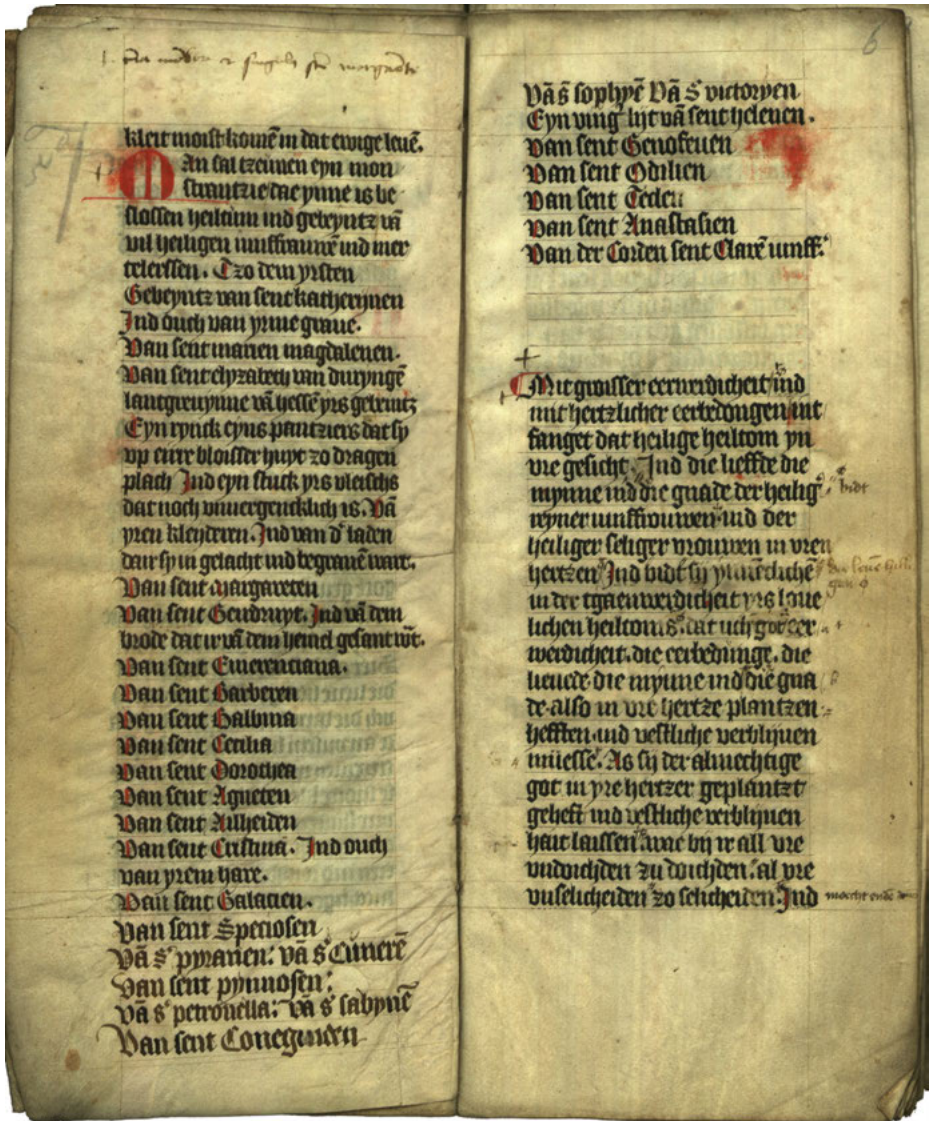 kleit moist komē in dat ewige leuē.
MAn sal tzeunen eyn mon
strantzie dae ynne is be
slossen heiltum ind gebeyntz vā
vil heiligen iunffrauwē ind mer
telerssen. Tzo dem yrsten
Gebeyntz van sent katherynen
Ind ouch van yrme graue.
Van sent marien magdalenen.
Van sent elyzabeth van duryngē
lantgreuynne vā hessē yrs gebeintz
Eyn rynck eyns pantziers dat sy
vp eirre bloisser huyt zo dragen
plach Ind eyn stuck yrs vleischs
dat noch vnuergencklich is. Vā
yren kleyderen. Ind van d' laden
dair sy in gelacht ind begrauē wart.
Van sent Margareten
Van sent Gerdruyt. Ind vā dem
brode dat ir vā dem hemel gesant wt.
Van sent Emerenciana.
Van sent Barberen
Van sent Balbina
Van sent Cecilia
Van sent Dorothea
Van sent Agneten
Van sent Ailheiden
Van sent Cristina. Ind ouch
van yrem hare.
Van sent Galacien.
Van sent Speciosen
Vā s' pynnosen
Van sent pynnosen:
Vā s' petronella: vā s' sabynē
Van sent Conegunden
6
Vā s' sophyē Vā S' victoryen
Eyn ving' lijt vā sent heleuen.
Van sent Genofeuen
Van sent Odilien
Van sent Teclen
Van sent Anastasien
Van der Corden sent Clarē iunff.
Mit groisser eerwerdicheit ind
mit hertzlicher eerbedongen int
fanget dat heilige heiltom yn
vre gesicht. Ind die lieffde die
mynne ind die gnade der heilig'
reyner iunffrouwen ind der
heiliger seliger vrouwen in vren
hertzen Ind bidt sy ynnēclichē
in der tgaenwerdicheit yrs loue
lichen heiltoms. dat uch got eer
werdicheit. die eerbedunge. die
lieuede die mynne ind die gna
de also in vre hertze plantzen
hefften ind vestliche verblijuen
müesse. As sy der almechtige
got in yre hertzer geplantzt
geheft ind vestliche verblijuen
hait laissen. wae bij ir all vre
vndoichden zu doichden. al vre
vnselicheiden zo selicheiden. Ind